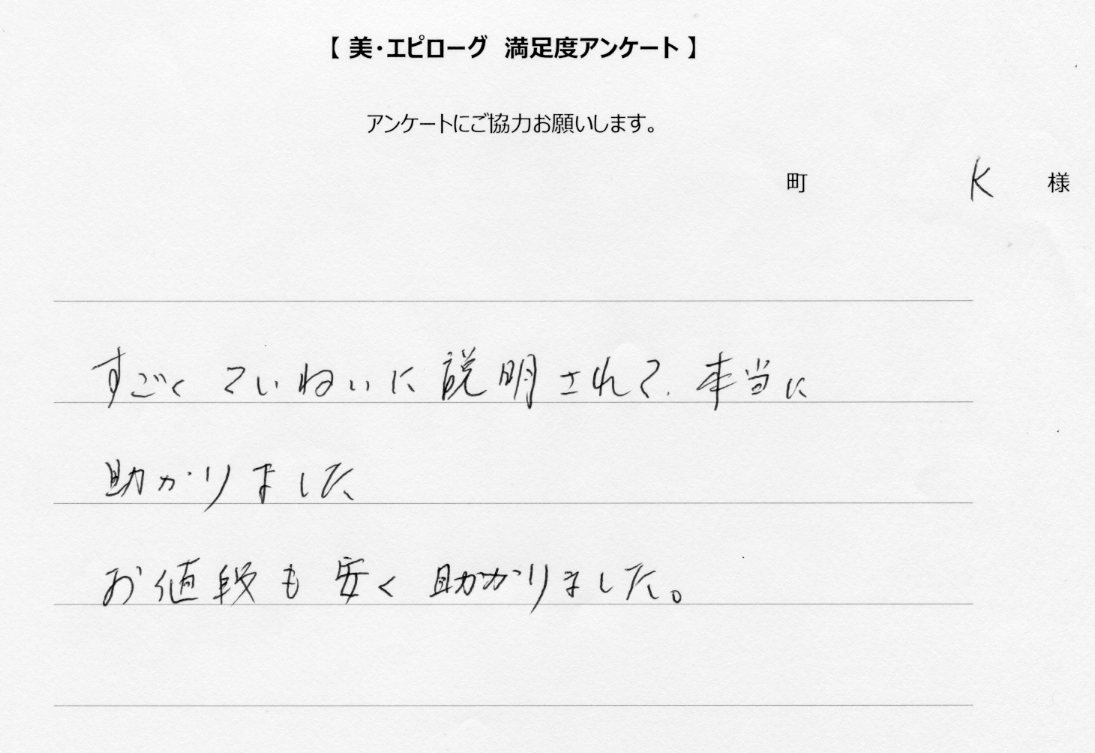 【 美・エピローグ 満足度アンケート 】
アンケートにご協力お願いします。
町 K 様
すごくていねいに説明されて、本当に
助かりました
お値段も安く助かりました。